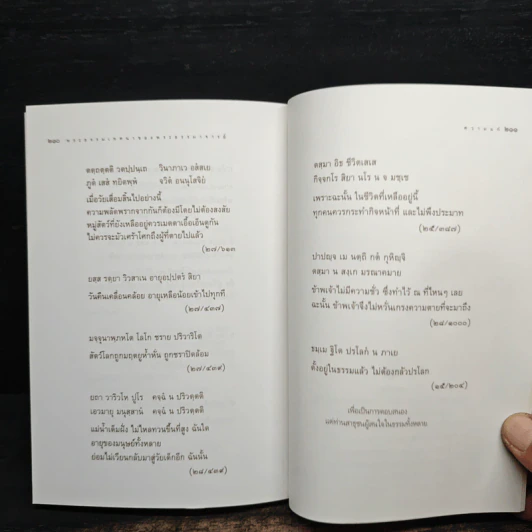 ๒๑๐ พระธรรมเทศนาของพระธรรมาจารย์
ตตฺถตฺตติ วตปฺปนฺเถ วินาภาเว อสํสเย
ภูตํ เสสํ ทยิตพฺพํ จวิตํ อนนุโสจิยํ
เมื่อวัยเสื่อมสิ้นไปอย่างนี้
ความพลัดพรากจากกันก็ต้องมีโดยไม่ต้องสงสัย
หมู่สัตว์ที่ยังเหลืออยู่ควรเมตตาเอื้อเอ็นดูกัน
ไม่ควรจะมัวเศร้าโศกถึงผู้ที่ตายไปแล้ว
(๒๗/๖๑๓)
ยสฺส รตฺยา วิวสาเน อายุอปฺปตรํ สิยา
วันคืนเคลื่อนคล้อย อายุเหลือน้อยเข้าไปทุกที
(๒๗/๔๓๗)
มจฺจุนาพฺภหโต โลโก ชราย ปริวาริโต
สัตว์โลกถูกมฤตยูห้ำหั่น ถูกชราปิดล้อม
(๒๗/๔๓๙)
ยถา วาริวโห ปูโร คจฺฉํ น ปริวตฺตติ
เอวมายุ มนุสฺสานํ คจฺฉํ น ปริวตฺตติ
แม่น้ำเต็มฝั่ง ไม่ไหลทวนขึ้นที่สูง ฉันใด
อายุของมนุษย์ทั้งหลาย
ย่อมไม่เวียนกลับมาสู่วัยเด็กอีก ฉันนั้น
(๒๘/๔๓๙)
๒๑๑
ตสฺมา อิธ ชีวิตเสเส
กิจฺจกโร สิยา นโร น จ มชฺเช
เพราะฉะนั้น ในชีวิตที่เหลืออยู่นี้
ทุกคนควรกระทำกิจหน้าที่ และไม่พึงประมาท
(๒๕/๓๘๗)
ปาปญฺจ เม นตฺถิ กตํ กุหิญฺจิ
ตสฺมา น สงฺเก มรณาคมาย
ข้าพเจ้าไม่มีความชั่ว ซึ่งทำไว้ ณ ที่ไหนๆ เลย
ฉะนั้น ข้าพเจ้าจึงไม่หวั่นเกรงความตายที่จะมาถึง
(๒๘/๑๐๐๐)
ธมฺเม ฐิโต ปรโลกํ น ภาเย
ตั้งอยู่ในธรรมแล้ว ไม่ต้องกลัวปรโลก
(๑๕/๒๐๘)
เพื่อเป็นการตอบสนอง
แด่ท่านสาธุชนผู้สนใจในธรรมทั้งหลาย